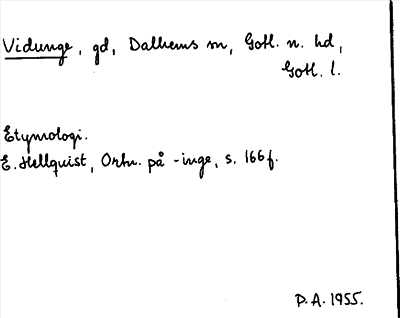 Vidunge, gd, Dalhems sn, Gotl. n. hd,
Gotl. l.
Etymologi.
E. Hellquist, Ortn. på -inge, s. 166 f.
P. A. 1955.